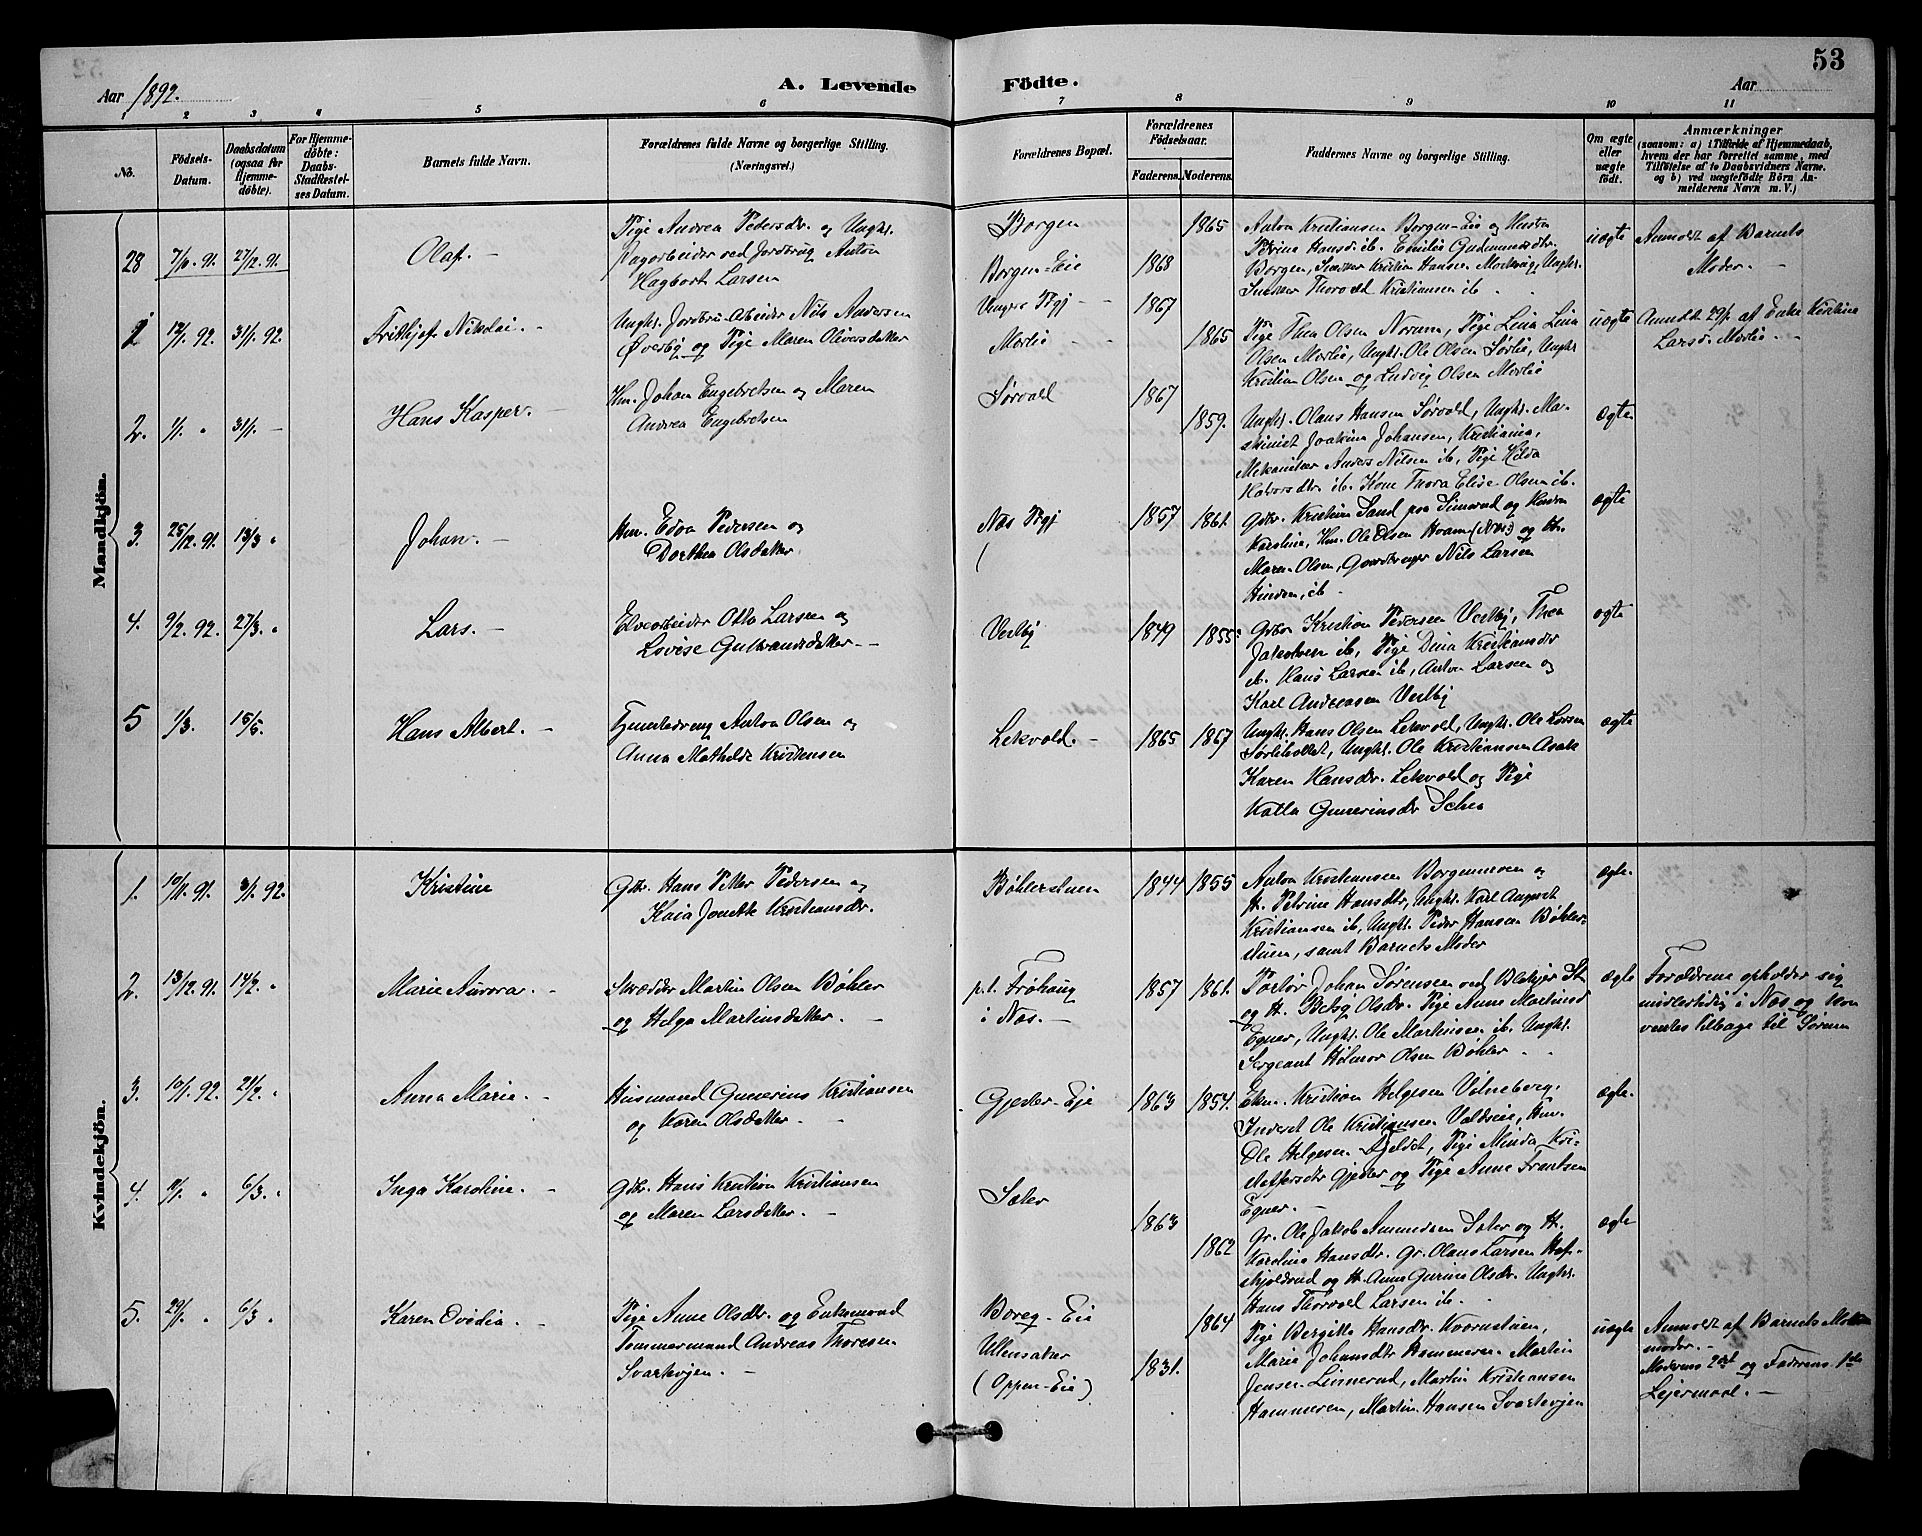 53
Aar 1892.
A. Levende Födte.
Aar
1 2 3 4 5 6 7 8 9 10 11
No.
Födsels-Datum.
Daabsdatum (ogsaa for Hjemme-döbte).
For Hjemme-döbte: Daabs-Stadfæstel-ses Datum.
Barnets fulde Navn.
Forældrenes fulde Navne og borgerlige Stilling.
(Næringsvei.)
Forældrenes Bopæl.
Forældrenes Födselsaar.
Faderens. Moderens.
Faddernes Navne og borgerlige Stilling.
Om ægte eller uægte födt.
Anmærkninger
(saasom: a) i Tilfælde af Hjemmedaab,
hvem der har forrettet samme, med
Tilföielse af to Daabsvidners Navne,
og b) ved uægtefödte Börn An-
melderens Navn m. V.)
Mandkjön.
28 7/10 91. 27/12 91. Olaf. Pige Andrea Pedersdr. og Ungk.
Dagarbeider ved Jordbrug Anton
Hagbart Larsen
Borgen
Borgen-Eie
1868 1865
Anton Kristiansen Borgen-Eie og Hustru
Petrine Hansdr. ib. Emilie Gudmundsdtr.
Borgen, Snedker Kristian Hansen, Ungk.
Snedker Thorvald Kristiansen ib
uægte
Anmeldt af Barnets
Moder.
1 12/1 92. 31/1 92. Frithjof Nikolai. Ungk. Jordbr.-Arbeider Nils Andersen
Øverby og Pige Maren Oliversdatter
Præstegj
Morlie
1867 1865
Pige Thea Olsen Norum, Pige Lina
Olsen Morlie, Ungk. Ole Olsen Sørlie, Ungk
Kristian Olsen og Ludvig Olsen Morlie
uægte
Anmdt 29/1 af Enke Kirstine
Larsd. Morlie
2. 1/1 " 31/1 Hans Kasper. Hm. Johan Engebretsen og Maren
Andrea Engebretsen
Sørvald
1867 1859.
Ungk. Olaus Hansen Sørvald, Ungk. Ma-
skinist Joakim Johansen, Kristiania,
Mekaniker Anders Nilsen ib, Pige Hilda
Halvorsdtr ib. Kone Thora Elise Olsen ib.
ægte
3. 25/12 91. 13/3 " Johan. Hm. Edv. Pedersen og
Dorthea Olsdatter
Næs Prgj
1857 1861.
Gdbr. Kristian Sand og Hustru
Karoline, Hm. Ole Olsen Hvam (Næs) og H.
Maren Olsen, Gaardbruger Nils Larsen
ib
ægte
4. 9/2 92. 27/3 " Lars. Elvearbeider Otto Larsen og
Lovise Gulbrandsdatter
Vestby
1849 1855
Gdbr Kristian Pedersen Vestby, Thea
Jakobsen ib, Pige Dina Kristiansdtr
ib. Hans Larsen ib, Anton Larsen og
Karl Andersen Vestby
ægte
5 1/3. 15/5. Hans Albert. Tjenestedreng Anton Olsen og
Anna Mathilde Kristensen
Lekvold.
1865 1867
Ungk. Hans Olsen Lekvold, Ungk. Ole Larsen
Ungk. Ole Kristiansen Asak
Karen Hansdtr. Lekvold og Pige
Gunerinsdtr
ægte
Kvindekjön.
1. 10/11 91. 3/1 92. Kristine Gdbr. Hans Petter Pedersen og
Kaia Jonette Kristiansdtr.
Bøhlerstuen
1844 1855
Anton Kristiansen og
H. Petrine Hansdtr, Ungk. Karl August
Kristiansen ib, Ungk. Peder Hansen Bøhler-
stuen, samt Barnets Moder
ægte.
2. 13/12 91. 14/2 " Marie Aurora. Skrædder Martin Olsen Bøhler
og Helga Martinsdatter.
p.t. Frøhaug
i Næs.
1857 1861.
Portør Johan Sørensen ved Blakjer St
og H. Betsy Olsdr. Pige Anne Martinsd
Egner, Ungk. Ole Martinsen ib. Ungk.
Sergeant Hilmar Olsen Bøhler
ægte
Forældrene opholder sig
midlertidig i Næs og kan
ventes tilbage til Sørum
3. 10/1 92. 21/2. " Anna Marie. Husmand Gunerius Kristiansen
og Karen Olsdatter.
Gjester-Eje
1863 1854.
Kristian Helgesen
Inderst Ole Kristiansen Valdseie, Hm.
Ole Helgesen Pige Minda Kri-
stoffersdtr Gjester og Pige Anne Frantsen
Egner.
ægte.
4. " 6/3. " Inga Karoline. Gdbr. Hans Kristian Kristiansen
og Maren Larsdatter.
Sæter
1863 1862
Gr. Ole Jakob Amundsen Sæter og H.
Karoline Hansdtr. Gr. Olaus Larsen
og H. Anne Gurine Olsdr. Ungk.
Hans Thorvald Larsen ib.
ægte
5. 29/1 " 6/3 " Karen Ovidia. Pige Anne Olsdtr. og Enkemand
Tømmermand Andreas Thoresen
Svarthøien.
Eie
Ullensaker
(Oppen-Eie)
1831. 1864
Pige Bergitte Hansdtr. Kvernstuen,
Marie Johansdtr Hammeren Martin
Jensen Linnerud, Martin Kristiansen
Hammeren, Martin Hansen Svarthøien
uægte
Anmeldt af Barnets
moder.
Moderens 2det og Faderens 1ste
Leiermaal.